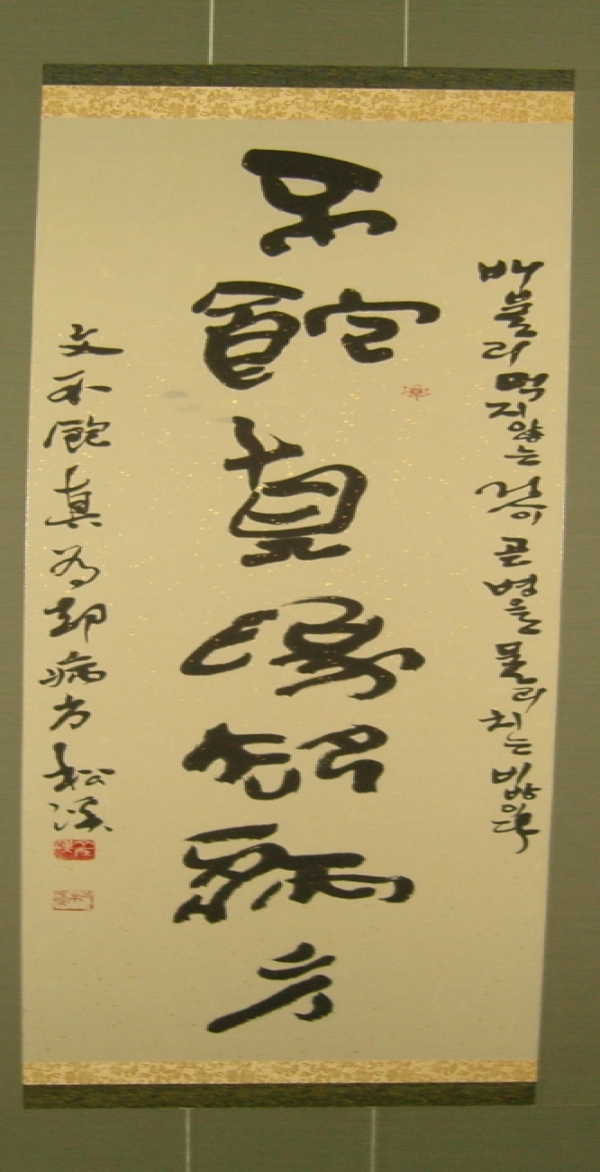 배불리 먹지않는 것이 곧 병을 물리치는 비방이다
不飽真爲却病方
文不飽真為却病方 松溪